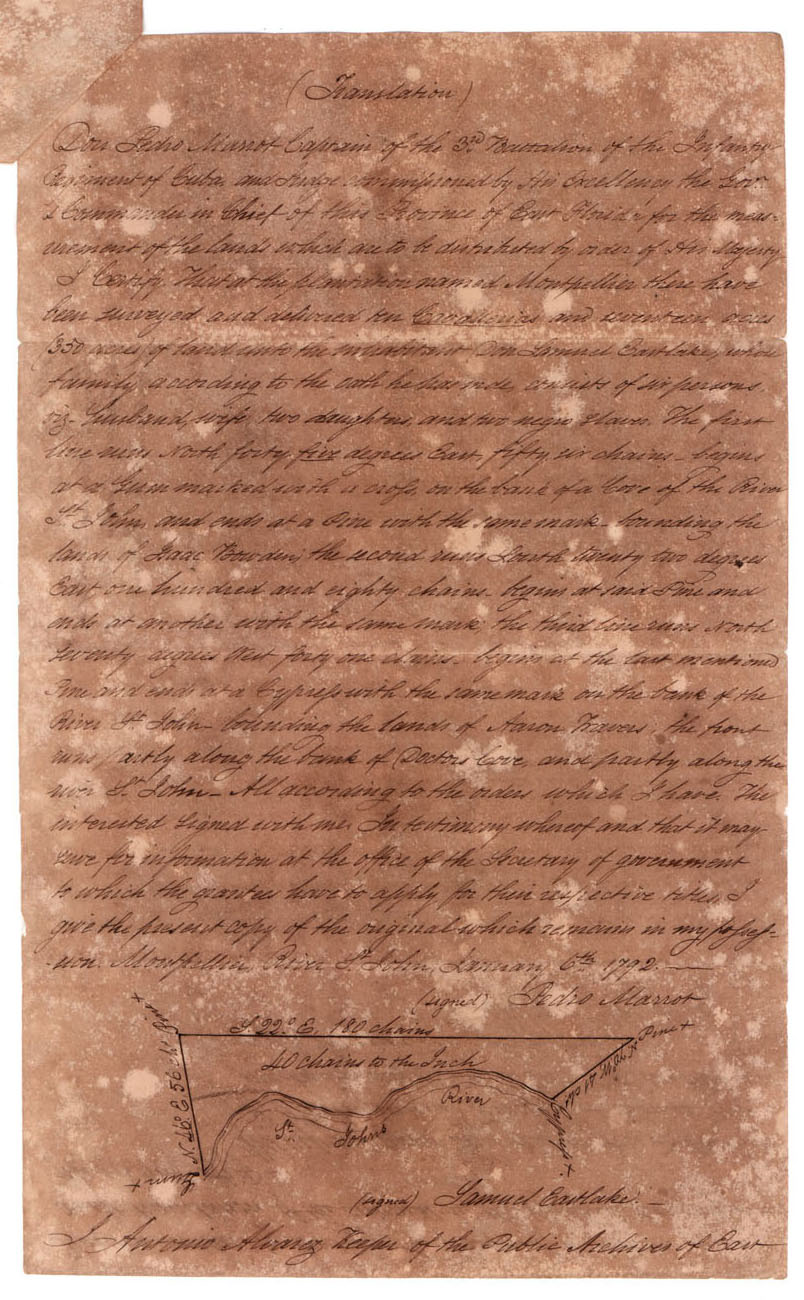 (Translation)
Don Pedro Marrot Captain of the 3d. Battalion of the Infantry
Regiment of Cuba, and Judge commissioned by His Excellency the Govr.
& Commander in Chief of this Province of East Florida for the meas-
urement of the lands which are to be distributed by order of His Majesty
I Certify, That at the plantation named Montpellier there have
been surveyed and delivered ten Cavallerias and seventeen acres
(350 acres) of land unto the inhabitant Don Samuel Eastlake, whose
family, according to the oath he has made, consists of six persons
viz- husband, wife, two daughters, and two negro slaves. The first
line runs North forty five degrees East, fifty six chains - begins
at a Gum marked with a cross, on the bank of a Cove of the River
St. John, and ends at a Pine with the same mark - bounding the
lands of Isaac Bowden; the second runs South twenty two degrees
East one hundred and eighty chains - begins at said Pine and
ends at another with the same mark; the third line runs North
seventy degrees West forty one chains - begins at the last mentioned
Pine and ends at a Cypress with the same mark on the bank of the
River St. John - bounding the lands of Aaron Travers; the front
runs partly along the bank of Doctors Cove, and partly along the
river St. John - All according to the orders which I have. The
interested signed with me. In testimony whereof and that it may
serve for information at the office of the Secretary of government
to which the grantees have to apply for their respective titles, I
give the present copy of the original which remains in my posses-
-sion. Montpellier, River St. John, January 6th. 1792. —
(signed) Pedro Marrot
Pine +
S. 22° E. 180 chains
Pine +
40 chains to the Inch
N. 70 W. 41 chs.
N. 45° E. 56 chs.
River
St. Johns
Cypress +
Gum +
(signed) Samuel Eastlake. —
I Antonio Alvarez Keeper of the Public Archives of East